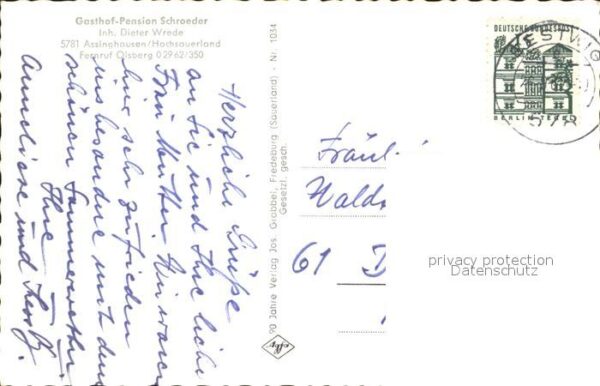 Gasthof-Pension Schroeder
Inh. Dieter Wrede
5781 Assinghausen/Hochsauerland
Fernruf Olsberg 02962/350
Herzliche Grüße
an Sie und Ihre liebe
Frau Mutter. Wir waren
hier sehr zufrieden
insbesondere mit dem
schönen Sommerwetter.
Ihre
Anneliese und
90 Jahre Verlag Jos. Grobbel, Fredeburg (Sauerland) - Nr. 1034
Gesetzl. gesch.
Fräul
Waldo
61 D
DEUTSCHE BUNDESPOST
BERLIN TEGEL
BESTWIG
578
privacy protection
Datenschutz